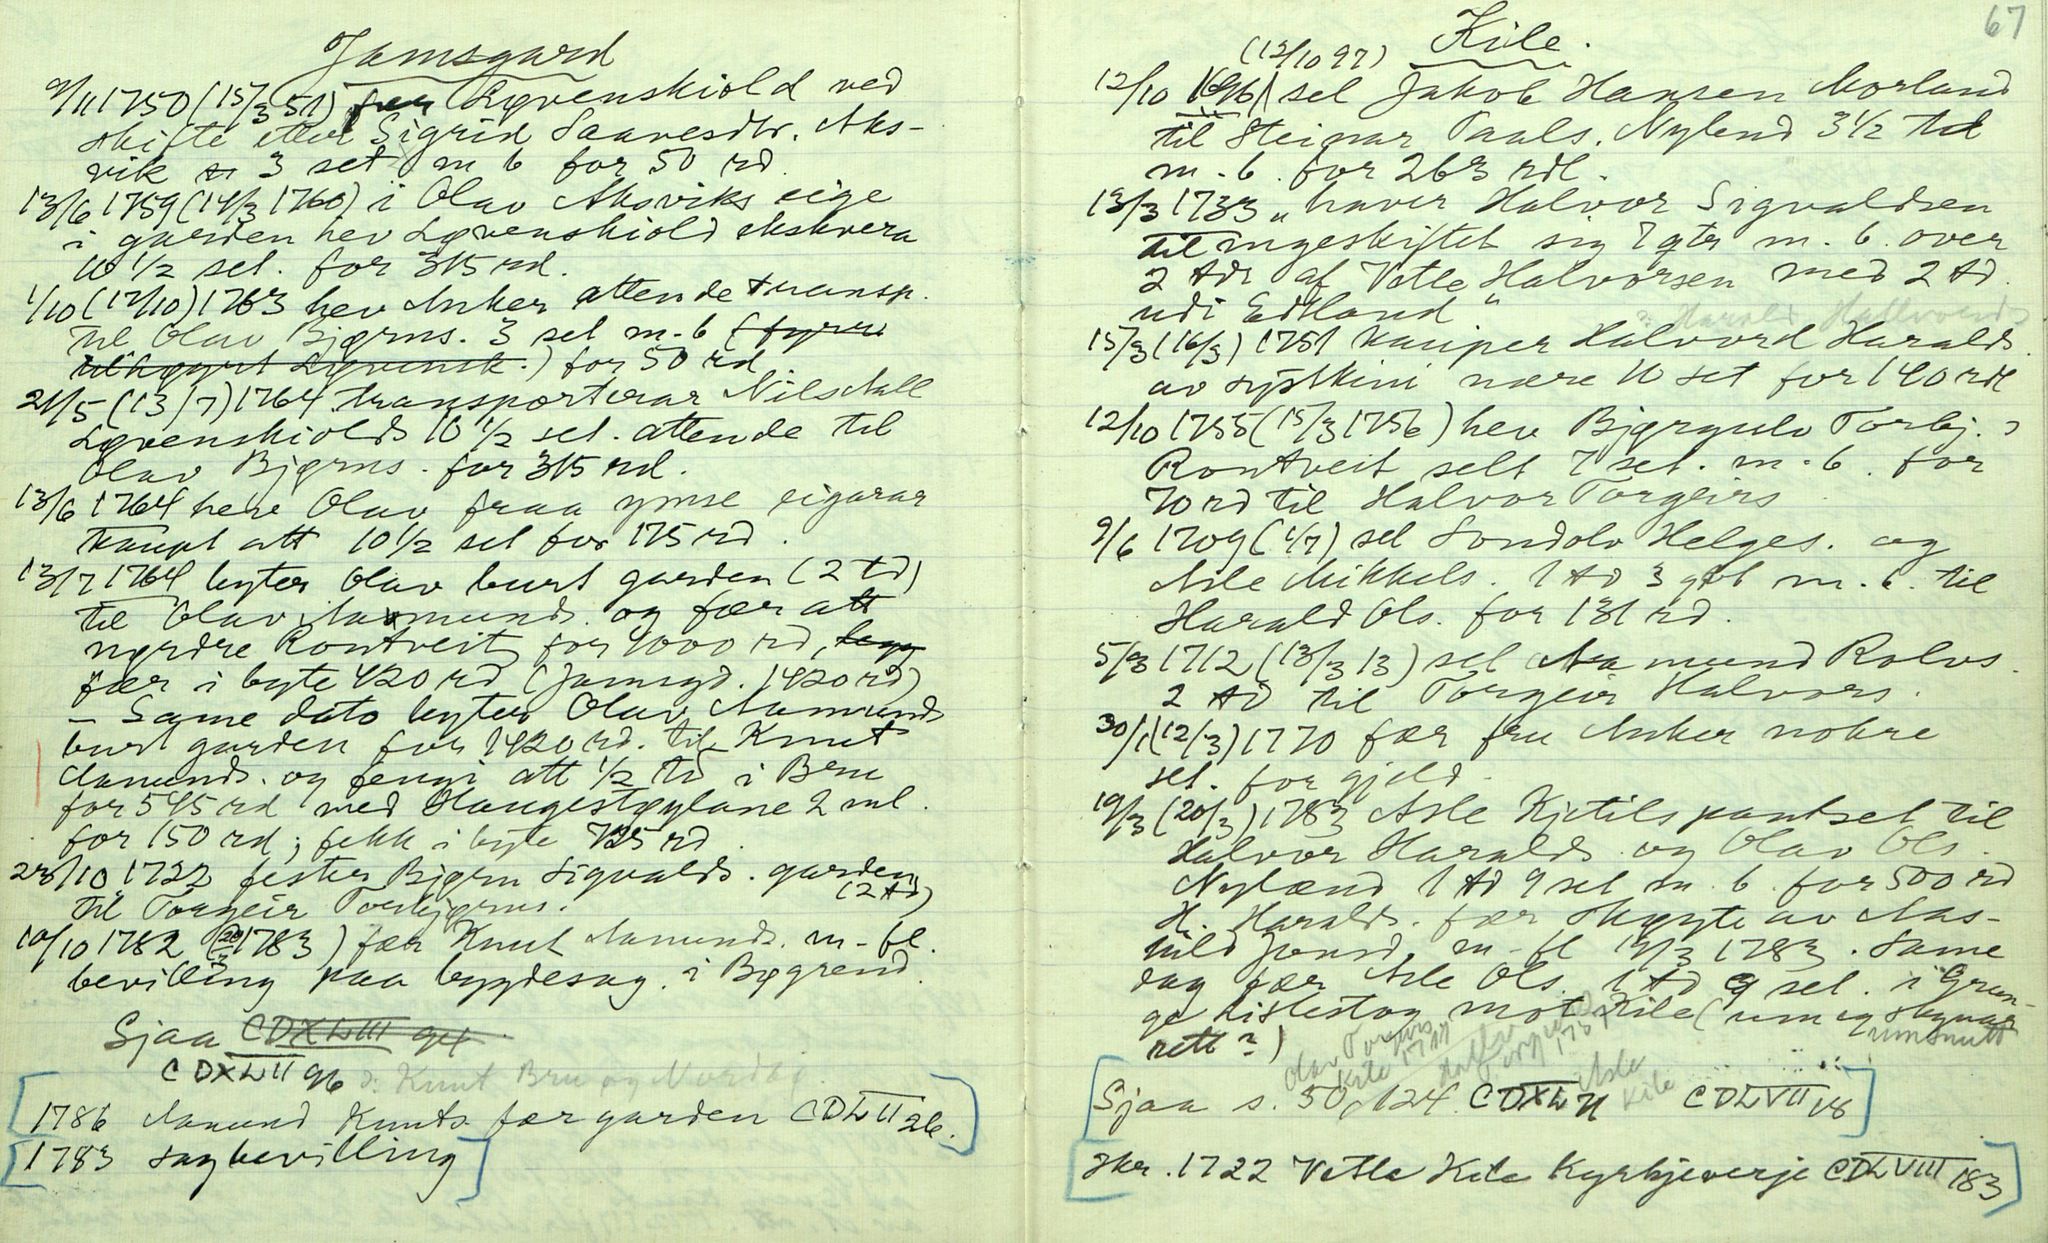 Jamsgard
9/11 1750 (15/3 51) fær Løvenskiold ved
skifte etter Sigrid Saavesdtr. Aks-
vik 3 set m. b for 50 rd.
13/6 1759 (14/3 1760) i Olav Aksviks eige
i garden hev Løvenskiold ekskvera
10 1/2 sel. for 315 rd.
1/10 (12/10) 1763 hev Anker attende transp.
til Olav Bjørns. 3 sel m. b (fyrr
tilhøyrt Løvensk.) for 50 rd
21/5 (13/7) 1764 transporterar Nils Aall
Løvenskiolds 10 1/2 sel. attende til
Olav Bjørns. for 315 rd.
13/6 1764 heve Olav fraa ymse eigarar
kaupt att 10 1/2 sel for 175 rd.
13/7 1764 byter Olav burt garden (2 td)
til Olav Aamunds. og fær att
nørdre Rontveit for 1000 rd,
fær i byte 420 rd (Jamsgd. 1420 rd)
– Same dato byter Olav Aamunds
burt garden for 1420 rd. til Knut
Aamunds. og fengi att 1/2 td i Bru
for 545 rd med Haugestøylane 2 ml.
for 150 rd; fekk i byte 725 rd.
28/10 1722 fester Bjørn Sigvalds. garden
(2 td)
til Torgeir Torbjørns.
10/10 1782 (20/3 1783) fær Knut Aamunds. m. fl.
bevilling paa bygdesag i Bøgrend.
Sjaa CDXLVIII 94
CDXLVII 96 ɔ: Knut Bru og Nordbø.
[1786 Aamund Knuts. fær garden CDLVII 26.]
[1783 sagbevilling]
67
Kile.
(12/10 97)
12/10 1696 sel Jakob Hansen Morland
til Steinar Paals. Nylend 3 1/2 td
m. b. for 263 rdl.
13/3 1733 „haver Halvor Sigvaldsen
til mageskiftet sig 7 qtr m. b. over
2 tdr af Vetle Halvorsen med 2 td.
udi Edland"
ɔ: Harald Hallvords
15/3 (16/3) 1751 kauper Halvord Haralds.
av syskini nære 10 set for 140 rdl
12/10 1755 (15/3 1756) hev Bjørgulv Torbj. s
Rontveit selt 7 sel. m. b. for
70 rd til Halvor Torgeirs.
9/6 1709 (1/7) sel Sondolv Helges. og
Asle Mikkels. 1 td 3 qtl m. b. til
Harald Ols. for 131 rd.
5/3 1712 (13/3 13) sel Aamund Rolvs.
2 td til Torgeir Halvors.
30/1 (12/3) 1770 fær fru Anker nokre
sel. for gjeld.
19/3 (20/3) 1783 Asle Kjetils pantset til
Halvor Haralds. og Olav Ols.
Nylænd 1 td 9 sel m. b. for 500 rd
H. Haralds. fær skøyte av Aas-
hild Jonsd. m. fl 19/3 1783. Same
dag fær Asle Ols. 1 td 9 sel. i Grun-
ge mot Kile (um eg skynar
rett?)
umsnutt
Olav Torgeirs
Kile 1711
Hallvor
Torgeirs
Asle
Kile
[Sjaa s. 50, 124. CDXLII CDLVII 18]
[Skr. 1722 Vetle Kile Kyrkjeverje CDLVIII 183]